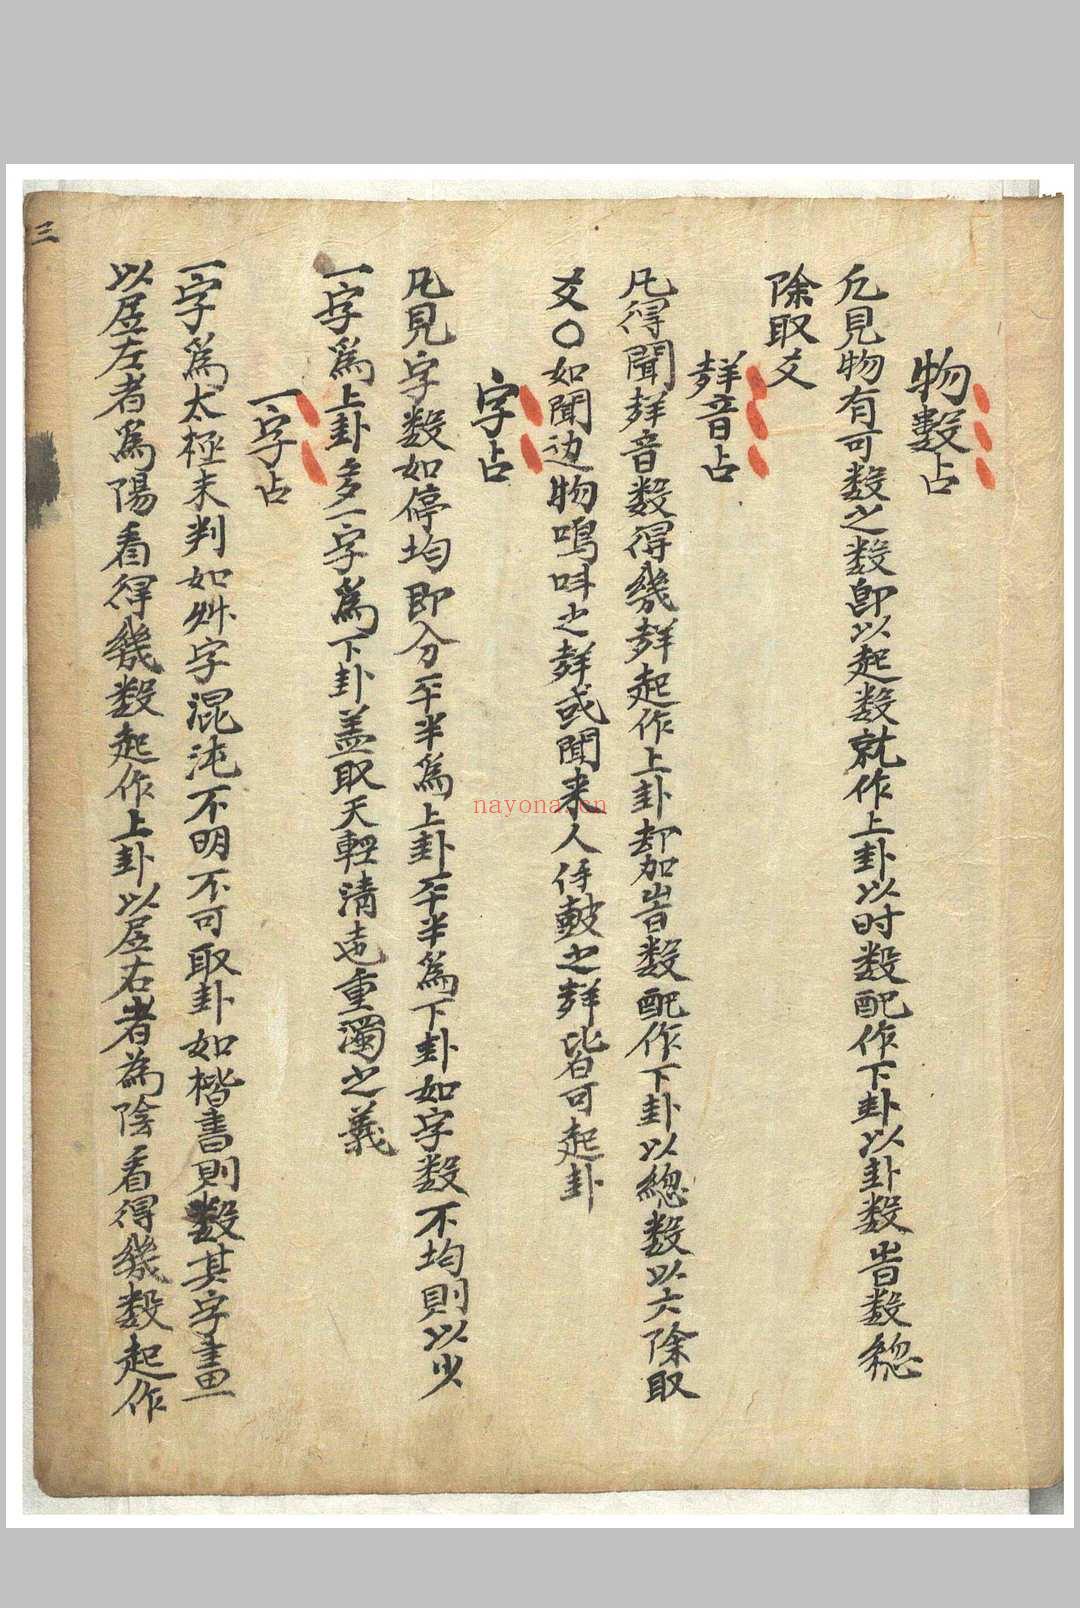 物數占
凡見物有可数之数即以起数就作上卦以时数配作下卦以卦数旹数總
除取爻
聲音占
凡得聞聲音数得幾聲起作上卦却加旹数配作下卦以總数以六除取
爻〇如聞边物鳴呌之聲或聞来人侍皷之聲皆可起卦
字占
凡見字数如停均即分平半爲上卦平半爲下卦如字数不均則以少
一字爲上卦多一字爲下卦盖取天輕清地重濁之義
一字占
一字爲太極未判如艸字混沌不明不可取卦如楷書則数其字畫
以居左者爲陽看得幾数起作上卦以居右者為陰看得幾数起作
三
nayona.cn